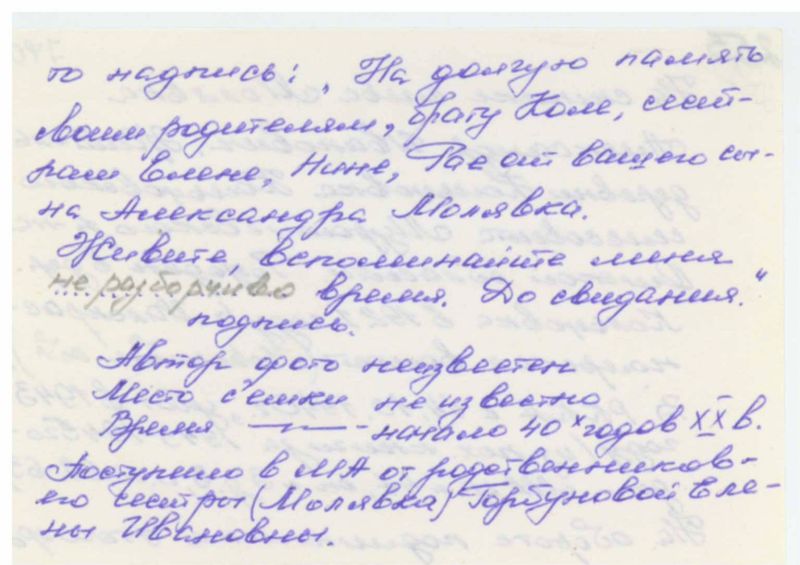 то надпись: „На долгую память
своим родителям, брату Коле, сест-
рам Елене, Нине, Рае от вашего сы-
на Александра Молявка.
Живите, вспоминайте меня
не разборчиво время. До свидания."
подпись.
Автор фото неизвестен
Место с'емки неизвестно
Время —"— начало 40х годов XX в.
Поступило в МА от родственников-
его сестры (Молявка) Горбуновой Еле-
ны Ивановны.